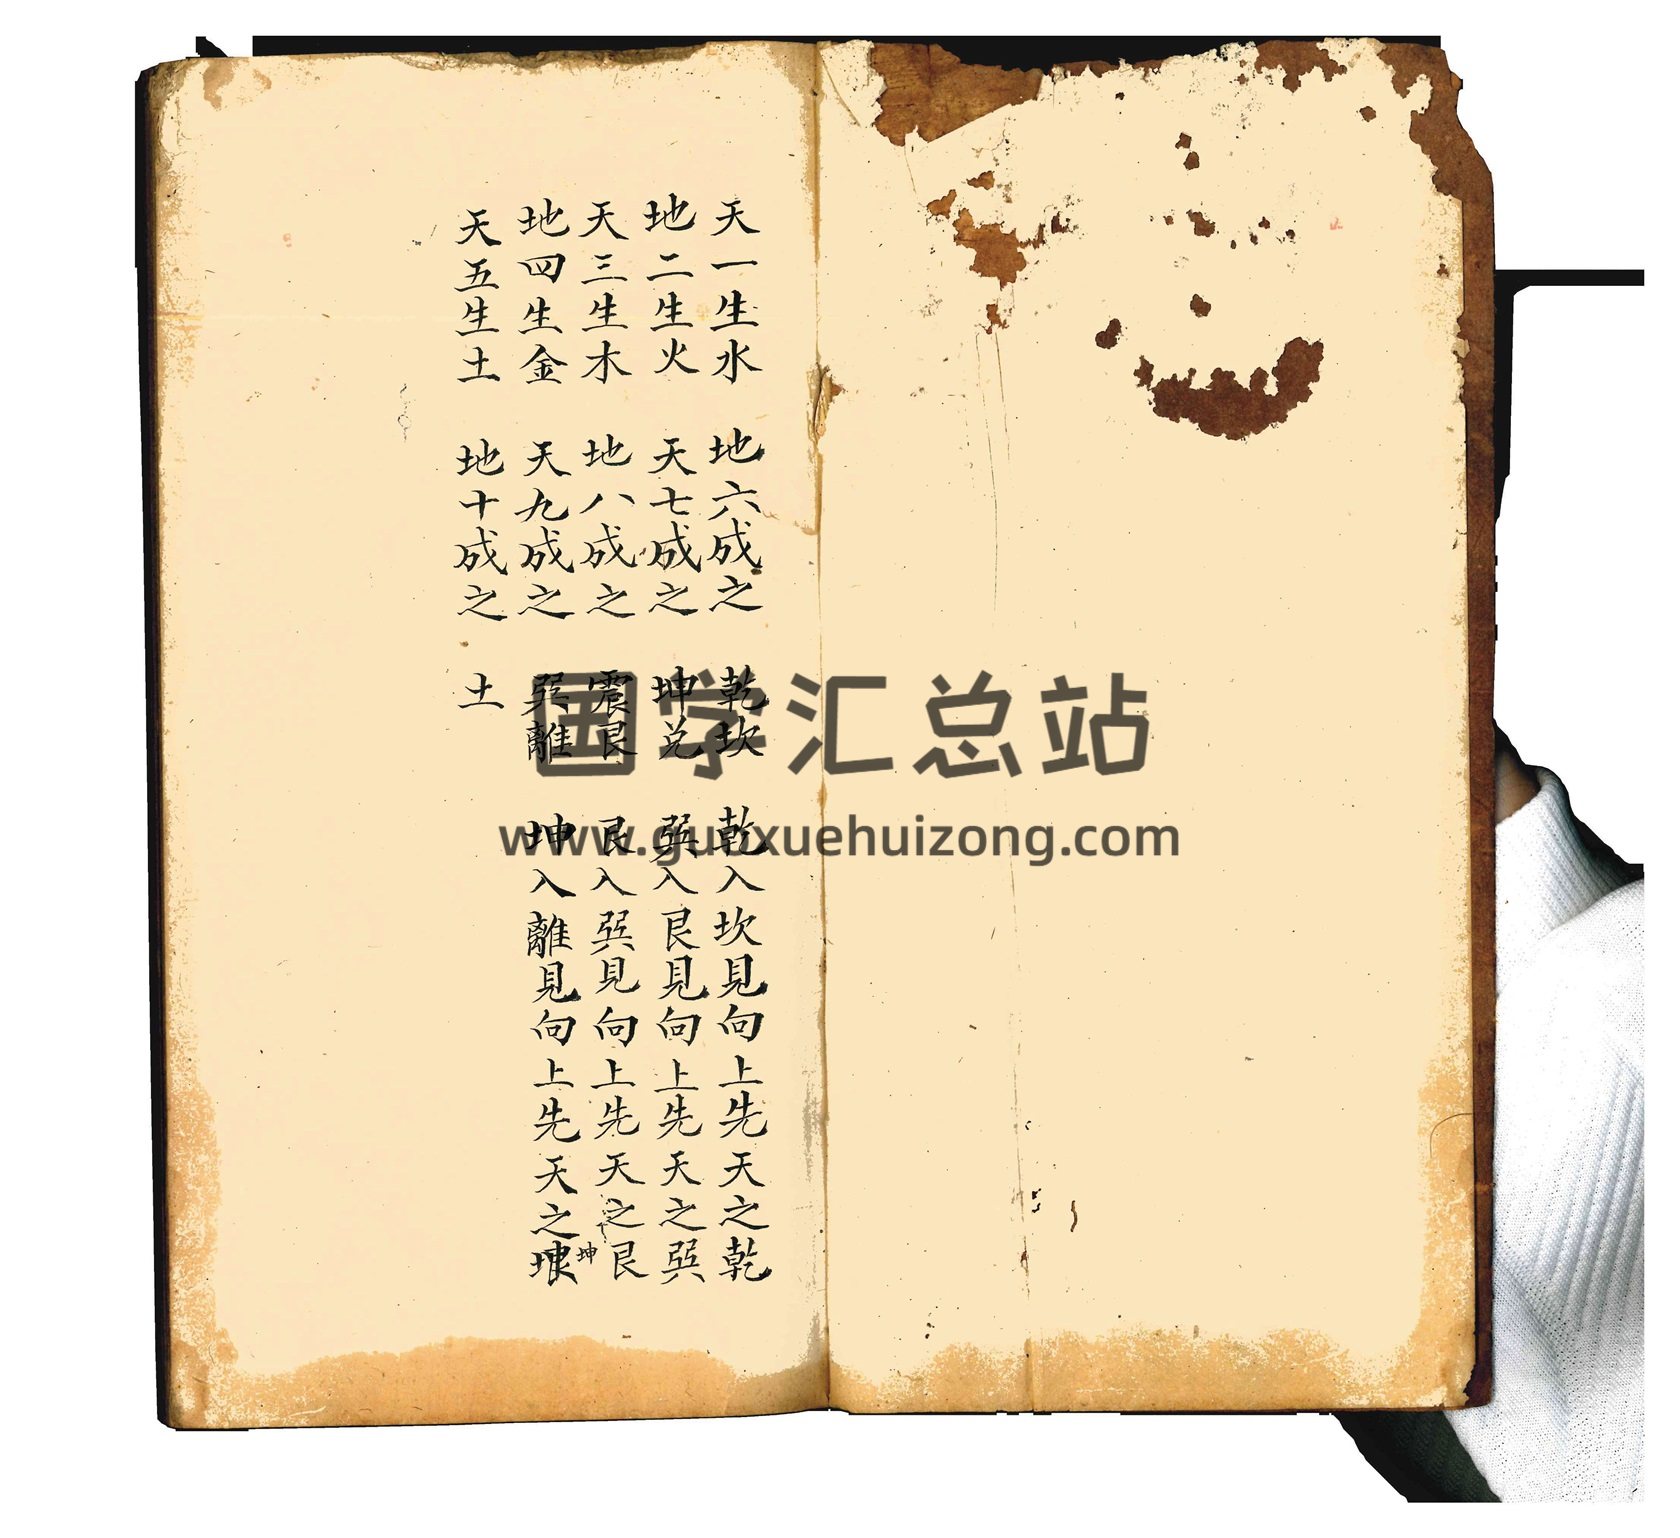 天一生水　地六成之　乾坎　乾入坎見向上先天之乾
地二生火　天七成之　坤兑　巽入艮見向上先天之巽
天三生木　地八成之　震艮　艮入巽見向上先天之艮
地四生金　天九成之　巽離　坤入離見向上先天之坤
天五生土　地十成之　土
国学汇总站
www.guoxuehuizong.com